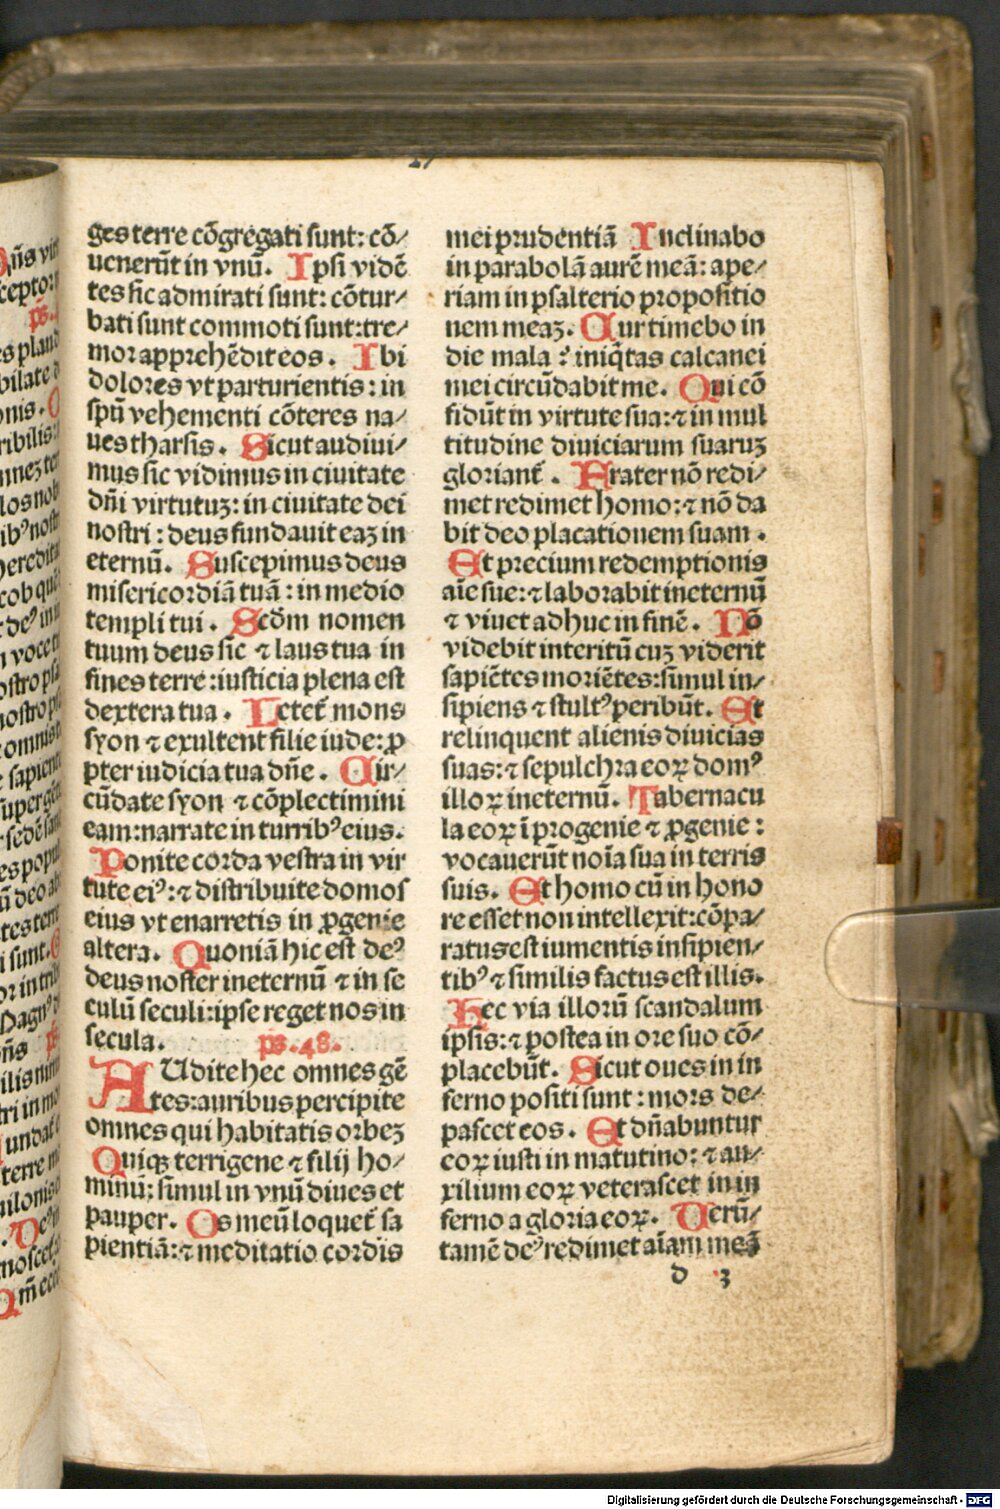 ges terre cōgregati sunt: cō/
uenerūt in vnū. Ipsi vidē
tes sic admirati sunt: cōtur/
bati sunt commoti sunt: tre/
mor apprehēdit eos. Ibi
dolores vt parturientis: in
spū vehementi cōteres na/
ues tharsis. Sicut audiui/
mus sic vidimus in ciuitate
dñi virtutuꝫ: in ciuitate dei
nostri: deus fundauit eaꝫ in
eternū. Suscepimus deus
misericordiā tuā: in medio
templi tui. Scdm̄ nomen
tuum deus sic ⁊ laus tua in
fines terre: iusticia plena est
dextera tua. Letet̄ mons
syon ⁊ exultent filie iude: ꝓ
pter iudicia tua dñe. Cir/
cūdate syon ⁊ cōplectimini
eam: narrate in turribꝰ eius.
Ponite corda vestra in vir
tute eiꝰ: ⁊ distribuite domos
eius vt enarretis in ꝓgenie
altera. Quoniā hic est deꝰ
deus noster in eternū ⁊ in se
culū seculi: ipse reget nos in
secula. ps. 48.
AUdite hec omnes gē
tes: auribus percipite
omnes qui habitatis orbeꝫ
Quiqꝫ terrigene ⁊ filij ho/
minū: simul in vnū diues et
pauper. Os meū loquet̄ sa
pientiā: ⁊ meditatio cordis
mei prudentiā Inclinabo
in parabolā aurē meā: ape/
riam in psalterio propositio
nem meaꝫ. Cur timebo in
die mala? iniq̄tas calcanei
mei circūdabit me. Qui cō
fidūt in virtute sua: ⁊ in mul
titudine diuiciarum suaruꝫ
gloriant̄. Frater nō redi/
met redimet homo: ⁊ nō da
bit deo placationem suam.
Et precium redemptionis
aīe sue: ⁊ laborabit in eternū
⁊ viuet adhuc in finē. Nō
videbit interitū cuꝫ viderit
sapiētes moriētes: simul in/
sipiens ⁊ stultꝰ peribūt. Et
relinquent alienis diuicias
suas: ⁊ sepulchra eoꝝ domꝰ
illoꝝ in eternū. Tabernacu
la eoꝝ ī progenie ⁊ ꝓgenie:
vocauerūt noīa sua in terris
suis. Et homo cū in hono
re esset non intellexit: cōpa/
ratus est iumentis insipien/
tibꝰ ⁊ similis factus est illis.
Hec via illorū scandalum
ipsis: ⁊ postea in ore suo cō/
placebūt. Sicut oues in in
ferno positi sunt: mors de/
pascet eos. Et dñabuntur
eoꝝ iusti in matutino: ⁊ au/
xilium eoꝝ veterascet in in
ferno a gloria eoꝝ. Uerū/
tamē deꝰ redimet aīam meā
d 3
Digitalisierung gefördert durch die Deutsche Forschungsgemeinschaft - DFG